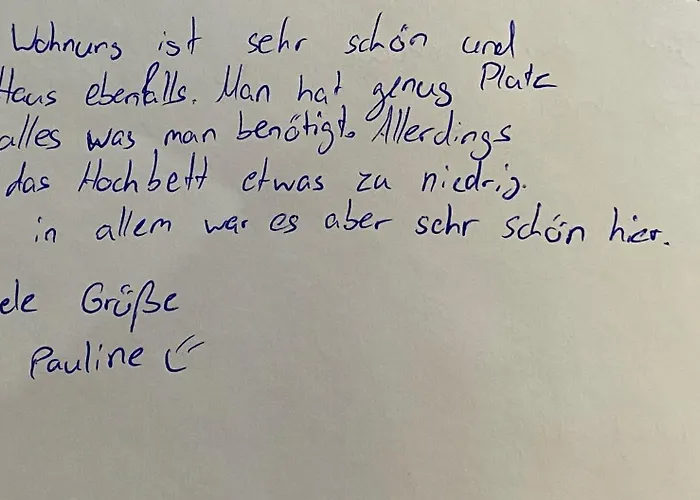 Wohnung ist sehr schön und
Haus ebenfalls. Man hat genug Platz
alles was man benötigt. Allerdings
das Hochbett etwas zu niedrig.
in allem war es aber sehr schön hier.
ele Grüße
Pauline